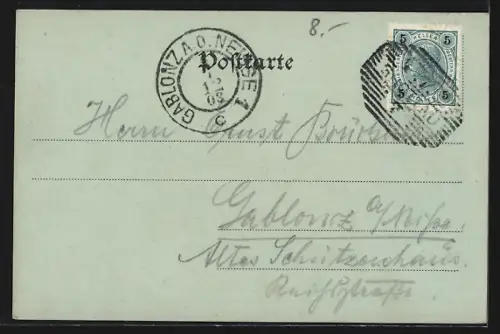 8.-
Postkarte
GABLONZ A.D. NEISSE 1
C
5 5
5 5
Herrn Ernst
Gablonz a/Neiße
Altes Schützenhaus
Reichsstraße.